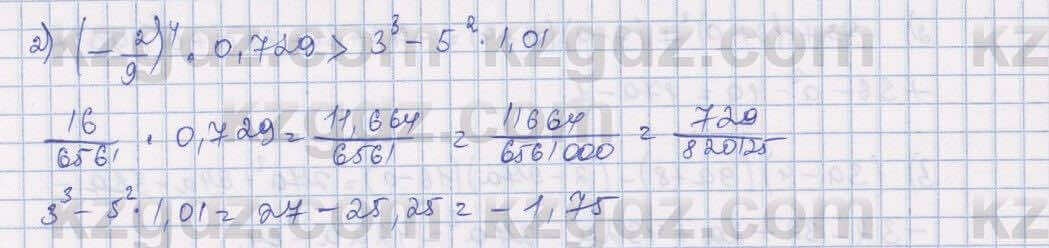 2) (-2/9)^4 · 0,729 > 3^3 - 5^2 · 1,01
16/6561 · 0,729 = 11,664/6561 = 11664/6561000 = 729/820125
3^3 - 5^2 · 1,01 = 27 - 25,25 = -1,75
kzgdz.com